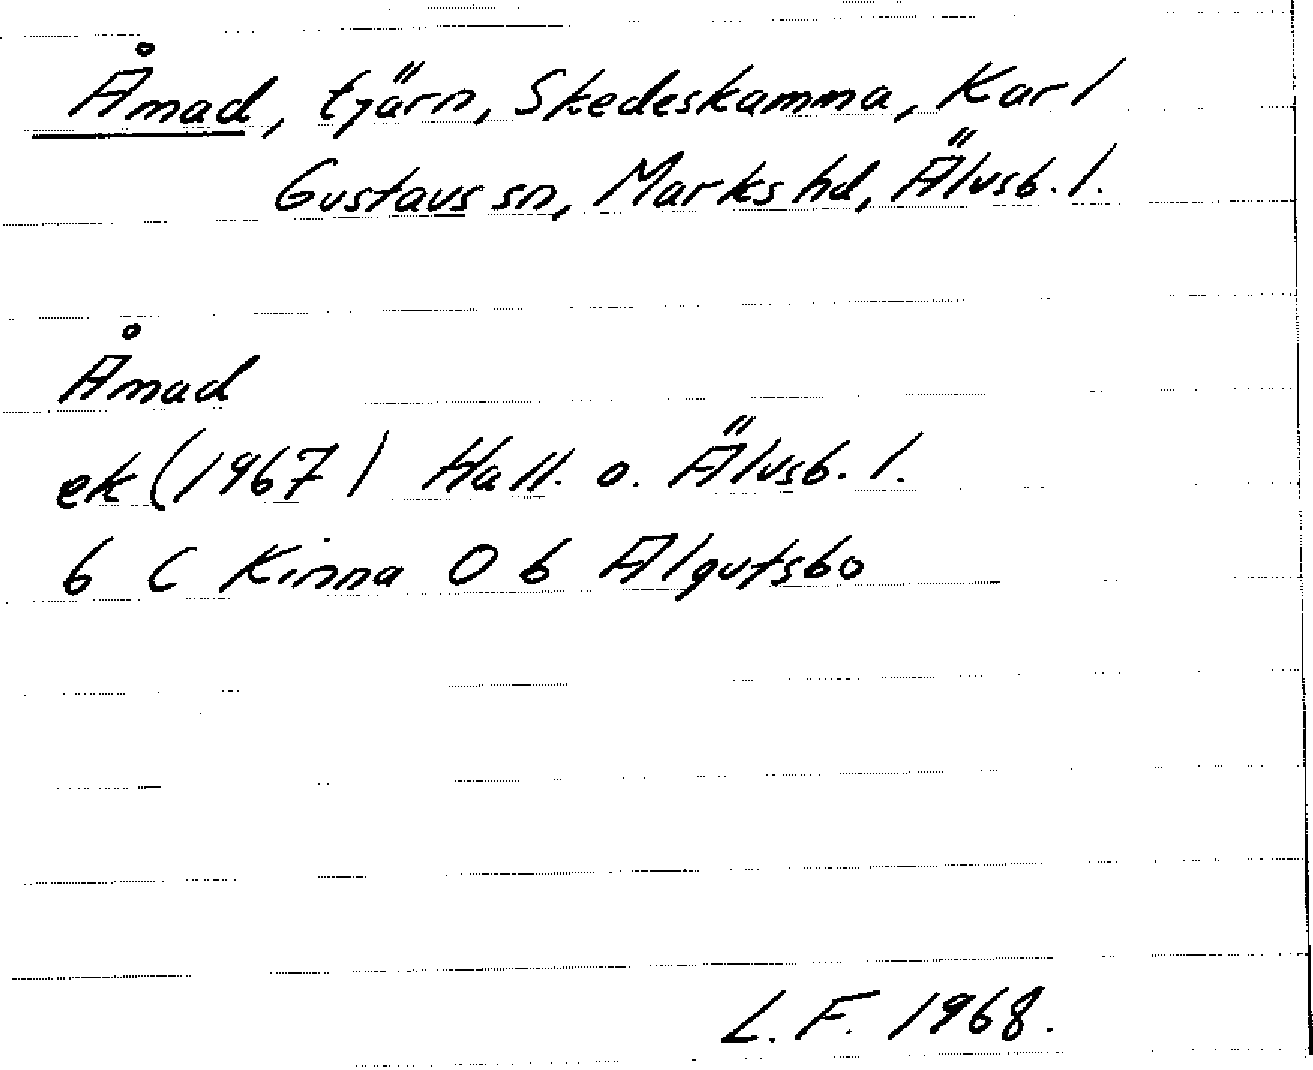 Åmad, tjärn, Skedeskamma, Karl
Gustavs sn, Marks hd, Älvsb. l.
Åmad
ek (1967) Hall. o. Älvsb. l.
6 C Kinna 0 b Algutsbo
L. F. 1968.